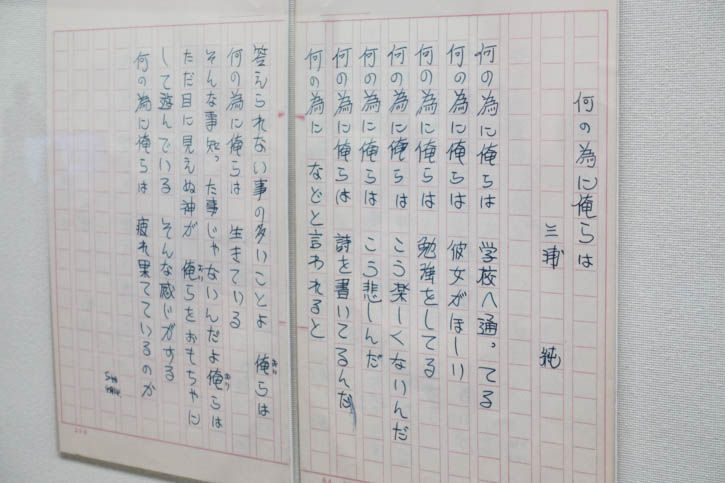 何の為に俺らは
三浦　純
何の為に俺らは　学校へ通ってる
何の為に俺らは　彼女がほしい
何の為に俺らは　勉強をしてる
何の為に俺らは　こう楽しくないんだ
何の為に俺らは　こう悲しんだ
何の為に俺らは　詩を書いてるんだ
何の為に　などと言われると
答えられない事の多いことよ　俺らは
何の為に俺らは　生きている
そんな事知った事じゃないんだよ俺らは
ただ目に見えぬ神が　俺らをおもちゃに
して遊んでいる　そんな感じがする
何の為に俺らは　疲れ果てているのか